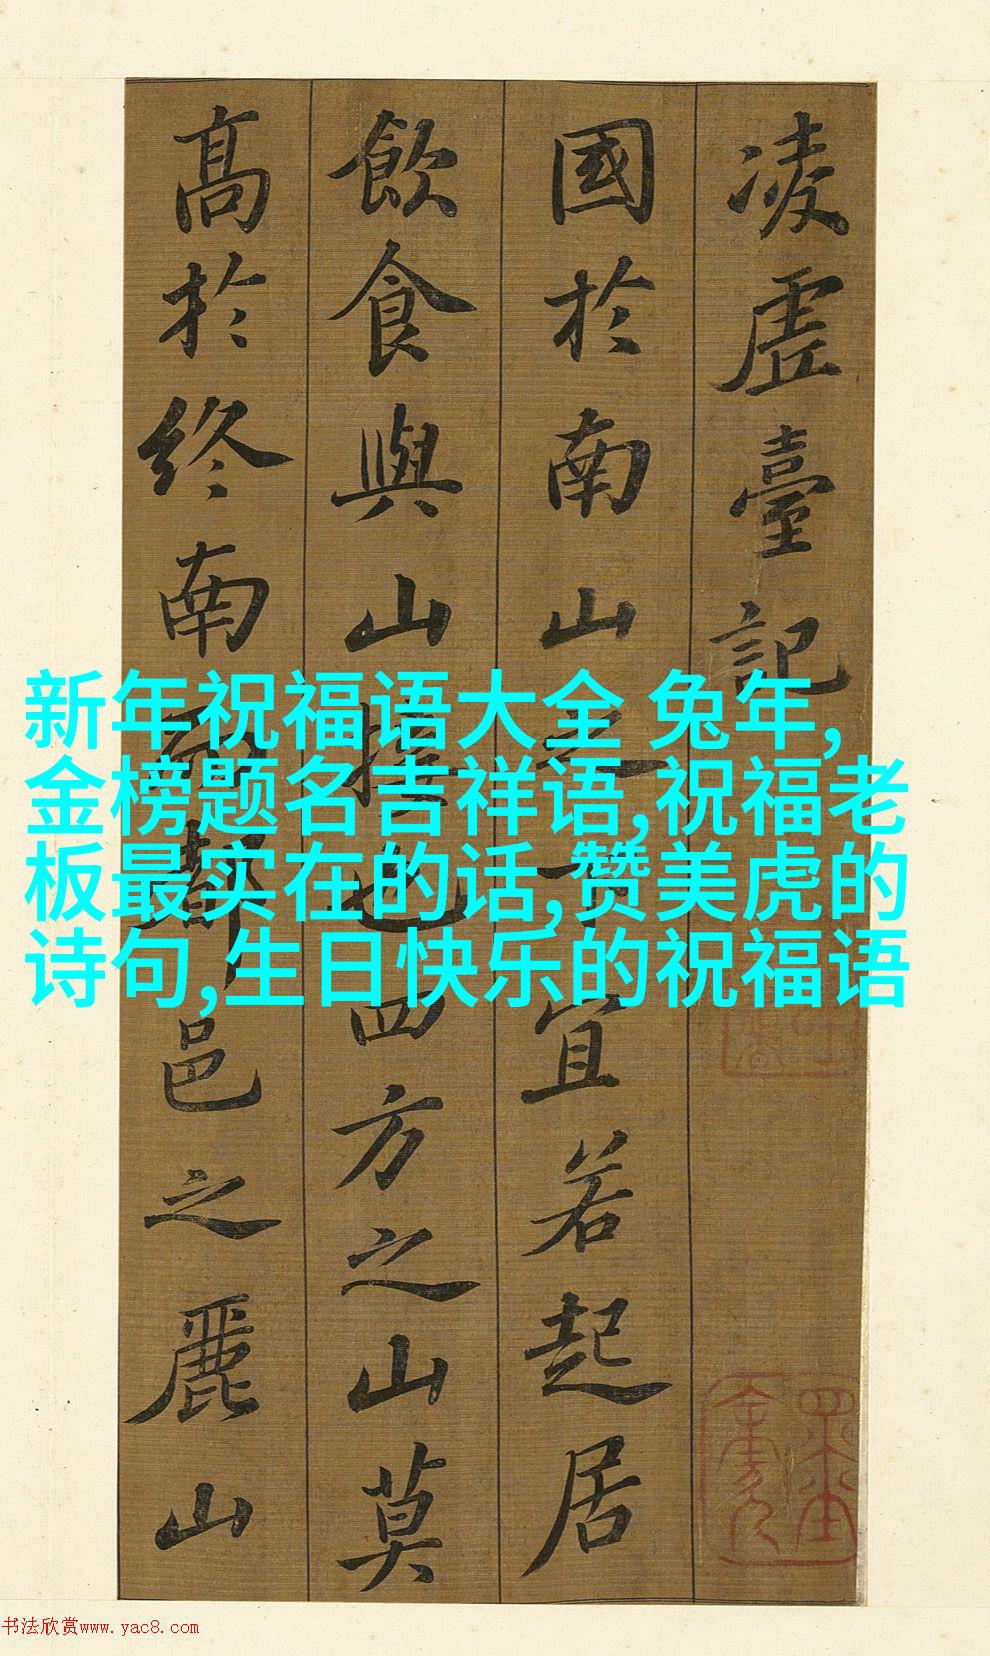 凌虗臺記
國於南山之下宜若起居
飲食與山接也四方之山莫
髙於終南而都邑之麗山
新年祝福语大全 兔年,
金榜题名吉祥语,祝福老
板最实在的话,赞美虎的
诗句,生日快乐的祝福语
书法欣赏www.yac8.com